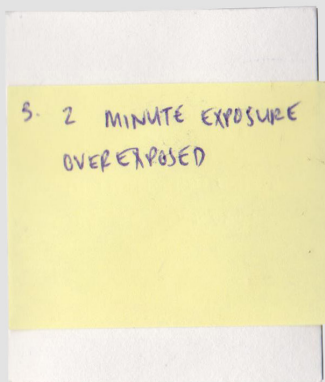 3. 2 MINUTE EXPOSURE
OVEREXPOSED